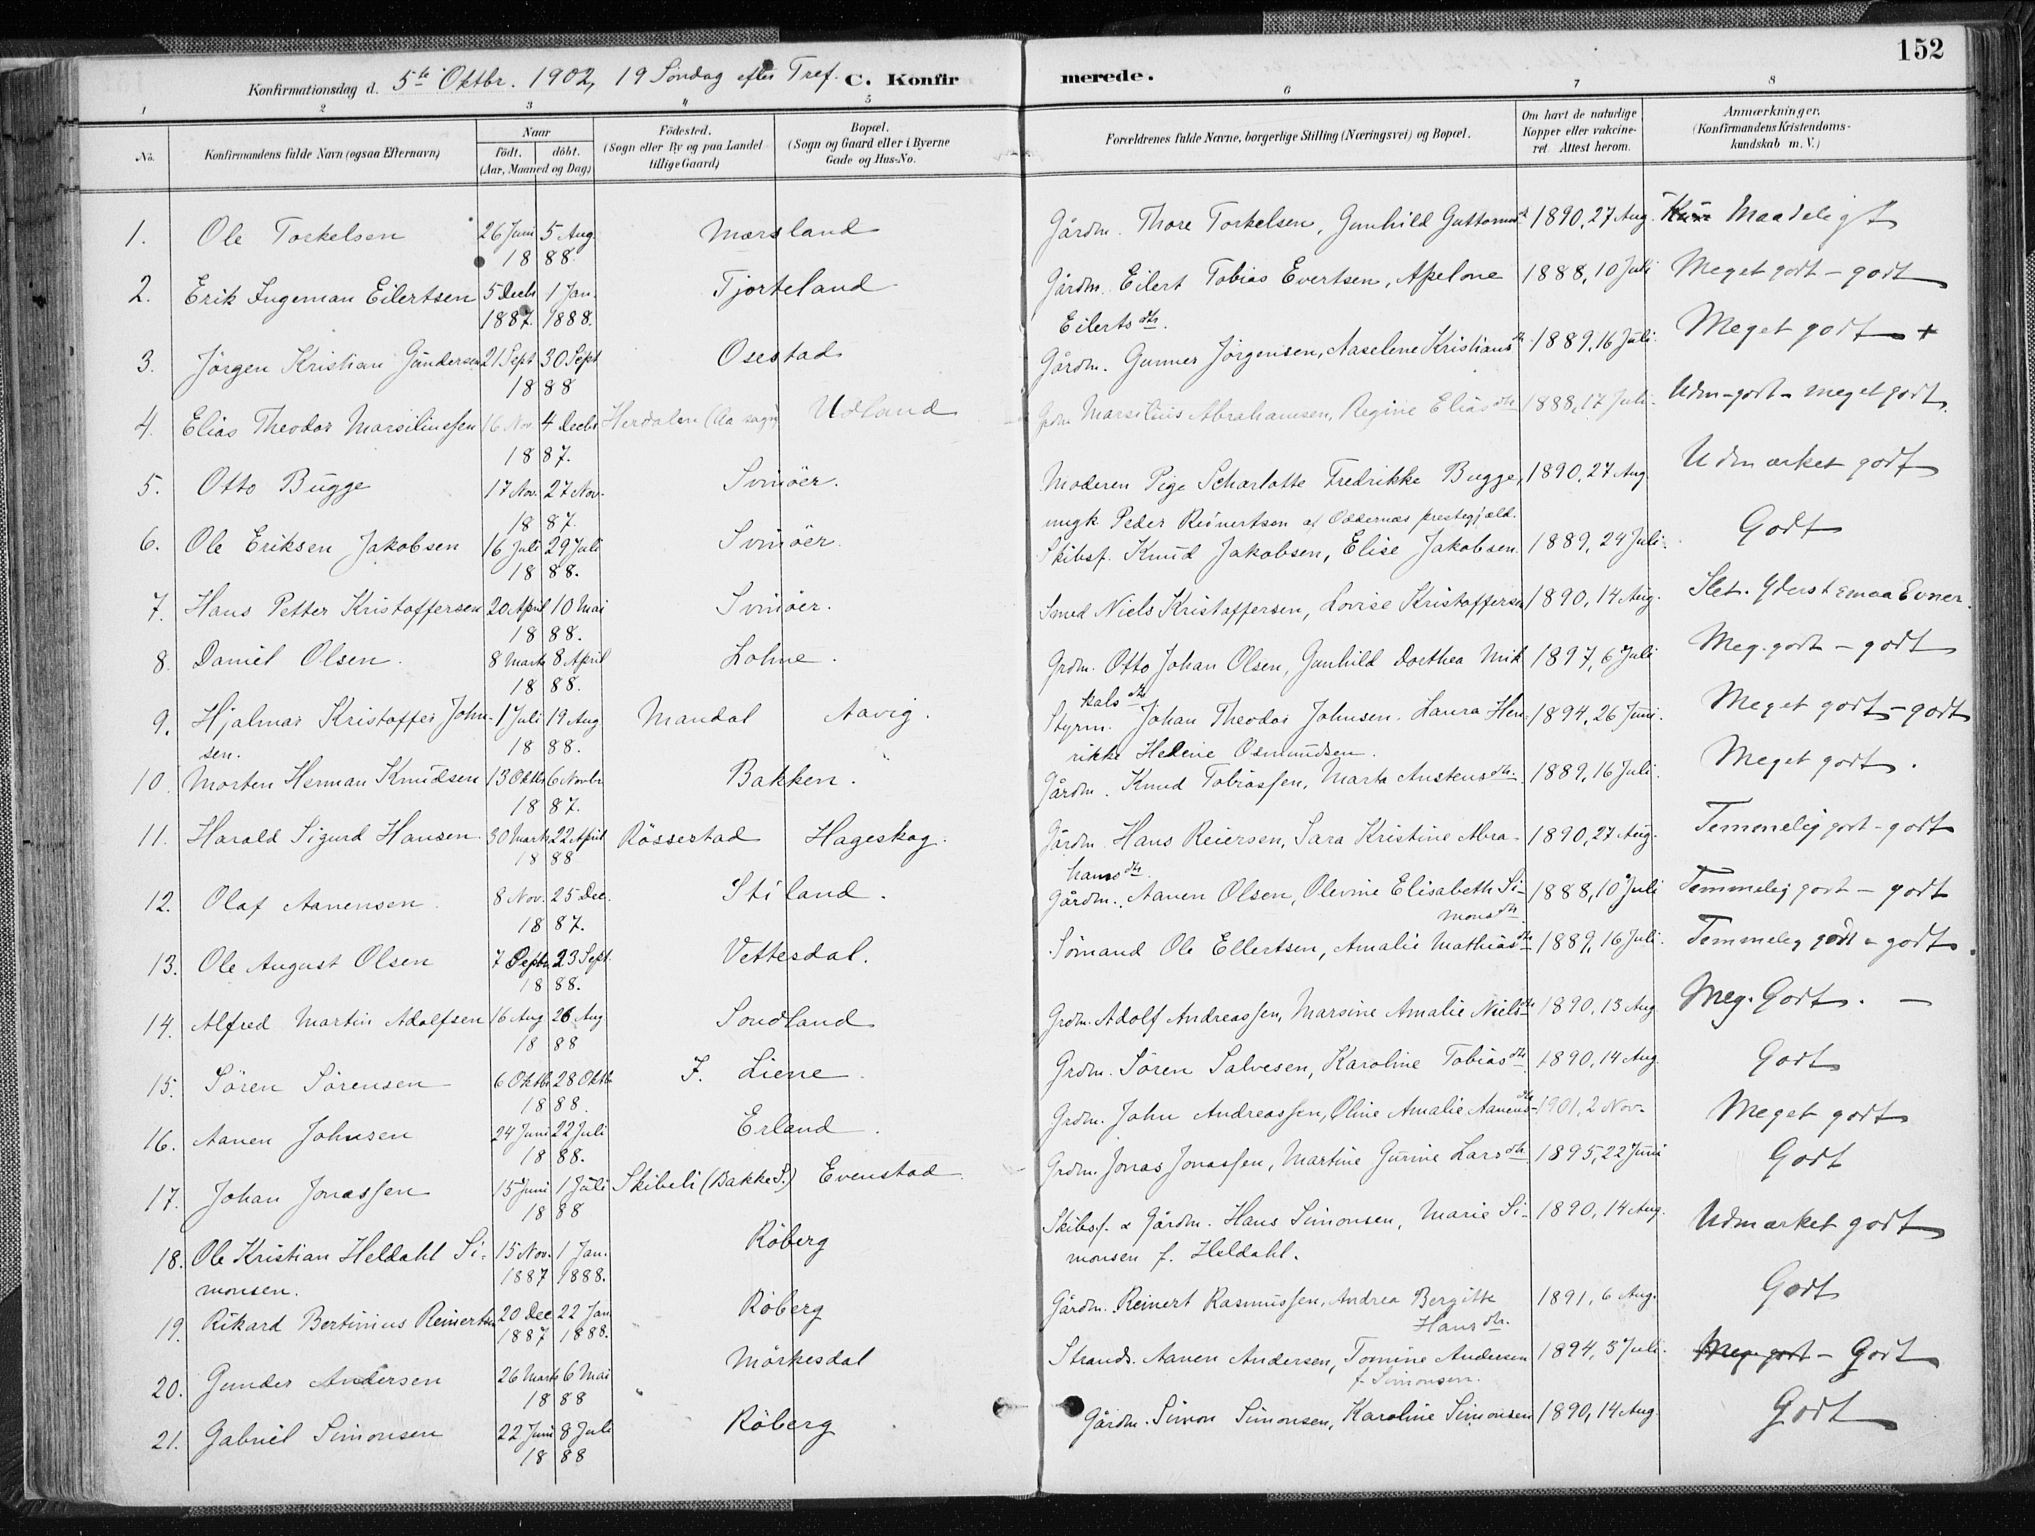 152
Konfirmationsdag d. 5te Oktbr. 1902, 19 Söndag efter Tref. C. Konfirmerede.
1 2 3 4 5 6 7 8
No. Konfirmandens fulde Navn (ogsaa Efternavn) Naar födt. döbt. (Aar, Maaned og Dag) Födested. (Sogn eller By og paa Landet tillige Gaard) Bopæl. (Sogn og Gaard eller i Byerne Gade og Hus-No. Forældrenes fulde Navne, borgerlige Stilling (Næringsvei) og Bopæl. Om havt de naturlige Kopper eller vakcineret. Attest herom. Anmærkninger. (Konfirmandens Kristendomskundskab m. V.)
1. Ole Torkelsen 26 Juni 5 Aug. Marsland Gårdm. Thore Torkelsen, Gunhild Guttorms dt 1890, 27 Aug. Maadeligt
18 88.
2. Erik Ingeman Eilertsen 5 Decb 1 Jan. Tjorteland Gårdm. Eilert Tobias Evertsen, Apelone 1888, 10 Juli Meget godt - godt
1887. 1888. Eilerts dtr.
3. Jörgen Kristian Gundersen 21 Sept 30 Sept Osestad Gårdm. Gunner Jörgensen, Aaselene Kristians dt 1889, 16 Juli. Meget godt +
18 88
4. Elias Theodor Marsiliussen 16 Nov 4 Decbr Herdalen (Aa sogn) Udland Grdm Marsilius Abrahamsen, Regine Elias dtr 1888, 17 Juli. Udm-godt - meget godt.
18 87.
5. Otto Bugge 17 Nov. 27 Nov. Svinöer. Moderen Pige Scharlotte Fredrikke Bugge, 1890, 27 Aug. Udmærket godt
18 87. ungk. Peder Reinertsen af Oddernæs prestegjæld.
6. Ole Eriksen Jakobsen 16 Juli 29 Juli Svinöer. Skibsf. Knud Jakobsen, Elise Jakobsen 1889, 24 Juli. Godt
18 88.
7. Hans Petter Kristoffersen 20 April 10 Mai Svinöer. Smed Niels Kristoffersen, Lovise Kristoffersen 1890, 14 Aug. Slet. Yderst smaa Evner.
18 88.
8. Daniel Olsen. 8 Marts 8 April Lohne. Grdm. Otto Johan Olsen, Gunhild Dorthea Mik 1897, 6 Juli Meg. godt - godt
18 88. kals dtr
9. Hjalmar Kristoffer John- 1 Juli 19 Aug Mandal Aavig. Styrm. Johan Theodor Johnsen. Laura Hen- 1894, 26 Juni. Meget godt - godt
sen. 18 88. rikke Helene Osmundsen.
10. Morten Herman Knudsen 13 Oktbr 6 Novbr Bakken. Gårdm. Knud Tobiassen, Marta Austens dtr. 1889, 16 Juli. Meget godt.
18 87.
11. Harald Sigurd Hansen. 30 Marts 22 April Rössestad Hageskog. Gårdm Hans Reiersen, Sara Kristine Abra- 1890, 27 Aug. Temmelig godt - godt
18 88 hams dtr.
12. Olaf Aanensen. 8 Nov. 25 Dec. Stiland. Gårdm. Aanen Olsen, Olevine Elisabeth Si- 1888, 10 Juli Temmelig godt - godt
18 87. mons dtr.
13. Ole August Olsen 7 Septr 23 Sept. Vettesdal. Sömand Ole Ellertsen, Amalie Mathias dtr 1889, 16 Juli. Temmelig godt - godt.
18 88.
14. Alfred Martin Adolfsen 16 Aug 26 Aug Soudland Grdm. Adolf Andreassen, Marsine Amalie Niels dtr 1890, 13 Aug. Meg. Godt. -
18 88
15. Sören Sörensen 6 Oktbr 28 Oktbr F. Liene. Grdm. Sören Salvesen, Karoline Tobias dtr 1890, 14 Aug. Godt
18 88.
16. Aanen Johnsen 24 Juni 22 Juli Erland. Grdm. John Andreassen, Oline Amalie Aanens dtr 1901, 2 Nov. Meget godt
18 88.
17. Johan Jonassen 15 Juni 1 Juli Skibeli (Bakke S.) Evenstad. Grdm. Jonas Jonassen, Martine Gurine Lars dtr 1895, 22 Juni Godt
18 88
18. Ole Kristian Heldahl Si- 15 Nov. 1 Jan. Röberg Skibsf. & Gårdm. Hans Simonsen, Marie Si- 1890, 14 Aug. Udmærket godt
monsen. 1887 1888. monsen f. Heldahl.
19. Rikard Bertinius Reinertsen 20 Dec 22 Jan Röberg Gårdm. Reinert Rasmussen, Andrea Bergitte 1891, 6 Aug. Godt
1887 1888. Hans dtr.
20. Gunder Andersen 26 Marts 6 Mai Mörkesdal Strands. Aanen Andersen, Tomine Andersen 1894, 3 Juli. Meg. godt - Godt
18 88 f. Simonsen.
21. Gabriel Simonsen 22 Juni 8 Juli Röberg Gårdm. Simon Simonsen, Karoline Simonsen 1890, 14 Aug. Godt
18 88